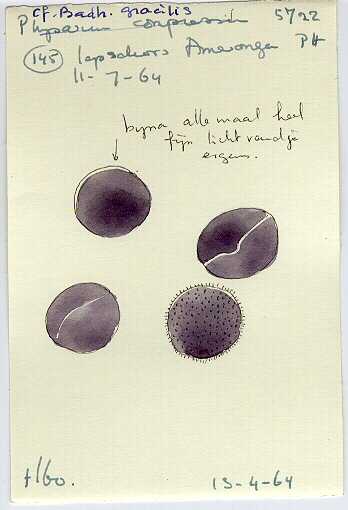 cf. Badh. gracilis
Physarum compressum 5722
145 iepschors Amerongen PH
11-7-64
bijna allemaal heel
fijn licht randje
ergens.
+/60. 13-4-64